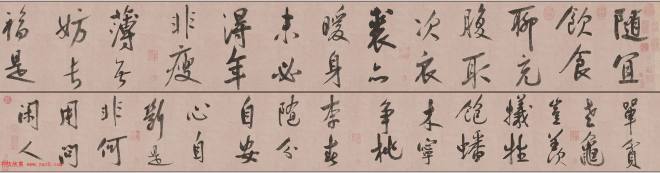 随宜
飲食
聊充
腹取
次衣
裘亦
暖身
未必
得年
非瘦
薄无
妨長
福是
單貧
老龜
豈羨
犧牲
飽蟠
木寧
爭桃
李春
随分
自安
心自
斷是
非何
用問
闲人